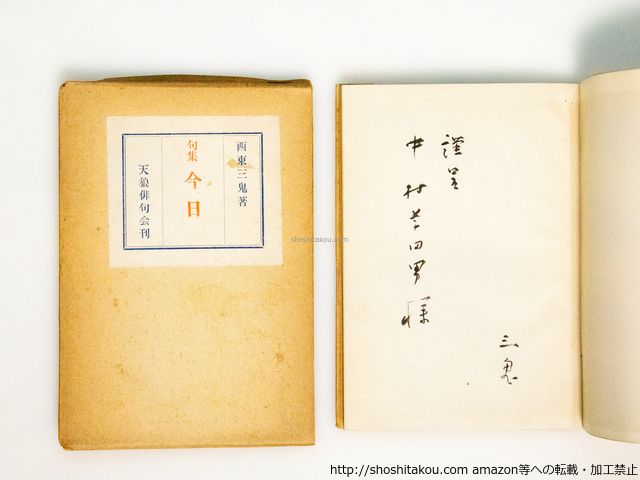 西東三鬼著
句集 今日
天狼俳句会刊
謹呈
中村草田男様
三鬼
shoshitakou.com
http://shoshitakou.com amazon等への転載・加工禁止